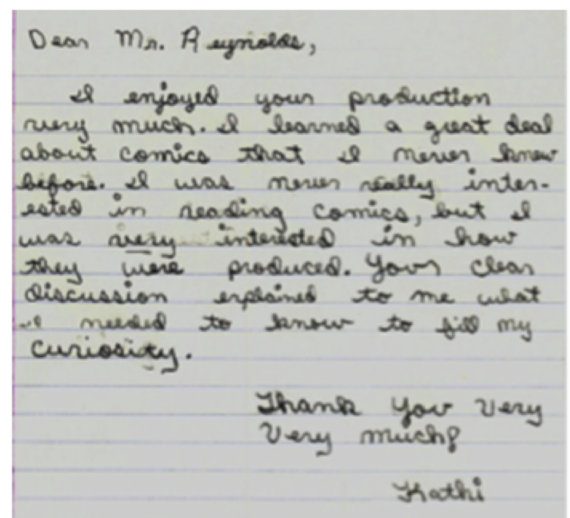 Dear Mr. Reynolds,
I enjoyed your production
very much. I learned a great deal
about comics that I never knew
before. I was never really inter-
ested in reading comics, but I
was very interested in how
they were produced. Your clear
discussion explained to me what
I needed to know to fill my
curiosity.
Thank you very
very much!
Kathi